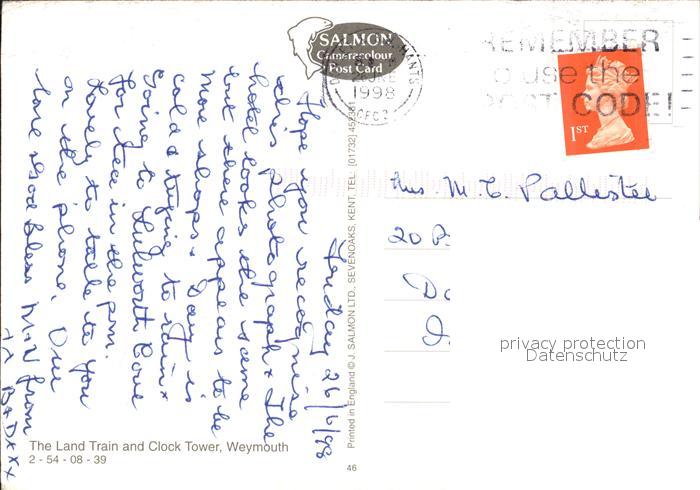 SALMON
Cameracolour
Post Card
HANTS
1998
REMEMBER
to use the
POST CODE!
1ST
Mrs. M. C. Pallister
20
privacy protection
Datenschutz
Friday 26/6/98
Hope you recognise
this photograph x The
hotel looks the same
but there appears to be
more shops. Day is
cold & trying to rain x
Going to Lulworth Cove
for tea in the pm.
Lovely to talk to you
on the phone. Our
love & God bless M. & N from
B & D xxx
Printed in England © J. SALMON LTD., SEVENOAKS, KENT, TEL: (01732) 452381
The Land Train and Clock Tower, Weymouth
2 - 54 - 08 - 39
46